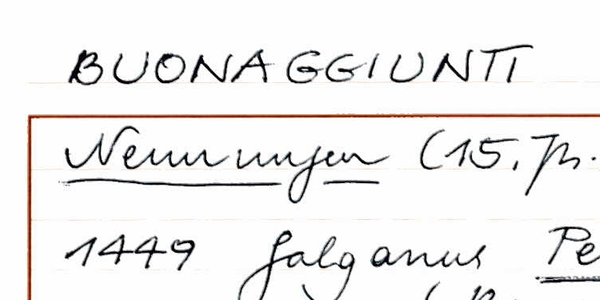 BUONAGGIUNTI
Nennungen (15. Jh.
1449 Galganus Pe